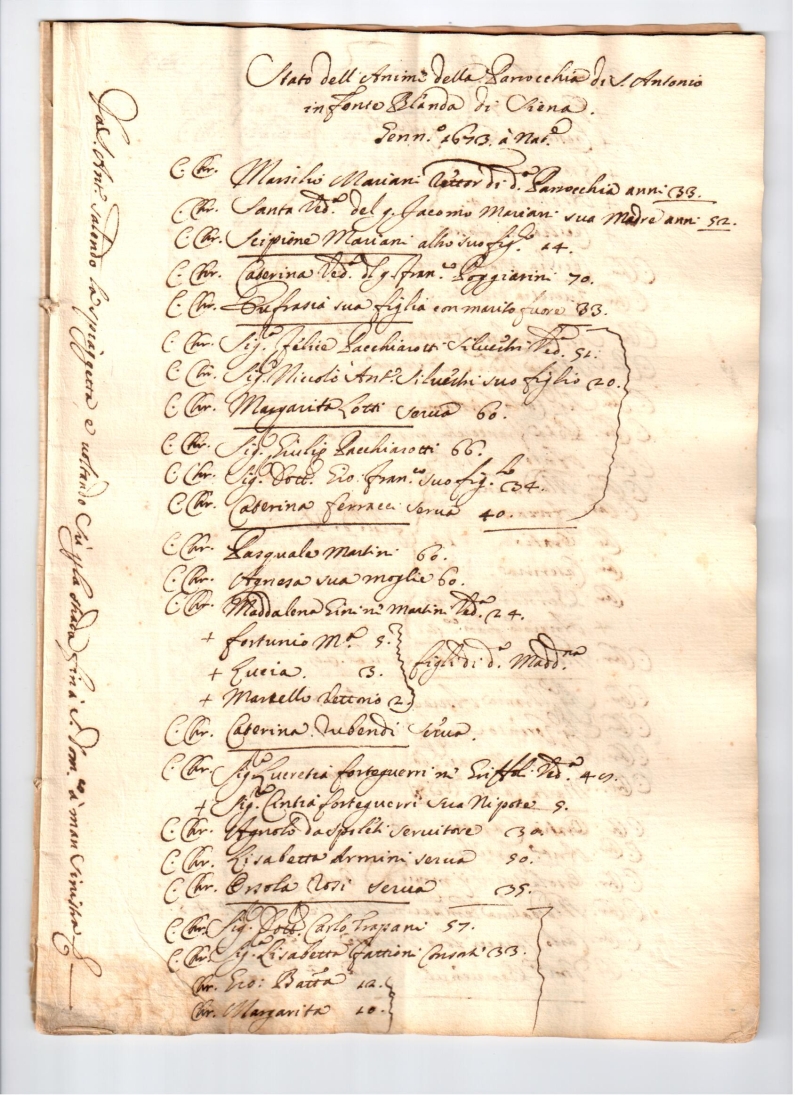 Stato dell'Anime della Parrocchia di S. Antonio
in Fonte Blanda di Siena.
Genn.º 1673. à Nat.º
C. Chr. Marsilio Mariani Rettor di d.ª Parrocchia anni 33.
C. Chr. Santa Ved.ª del q. Jacomo Mariani sua Madre anni 52.
C. Chr. Scipione Mariani altro suo fig.º 14.
C. Chr. Caterina Ved.ª del q. fran.co Poggiarini 70.
C. Chr. Eufrasia sua figlia con marito fuore 33.
C. Chr. Sig.ª felice Pacchiarotti Silvestri Ved.ª 51.
C. Chr. Sig. Niccolò Ant.º Silvestri suo figlio 20.
C. Chr. Margarita Lotti serva 60.
C. Chr. Sig. Giulio Pacchiarotti 66.
C. Chr. Sig. Dott. Gio: fran.co suo fig.lo 34.
C. Chr. Caterina ferracci serva 40.
C. Chr. Pasquale Martini 60.
C. Chr. Agnesa sua moglie 60.
C. Chr. Maddalena ne Martini Ved.ª 24.
+ fortunio M.ª 5.
+ Lucia. 3. figli di d.ª Madd.na
+ Marcello Vettorio 2.
C. Chr. Caterina Rubendi serva.
C. Chr. Sig.ª Lucretia forteguerri ne Griffoli Ved.ª
+ Sig.ª Cintia forteguerri sua Nipote 5.
C. Chr. Agnolo da Spoleti servitore 30.
C. Chr. Lisabetta Armini serva 50.
C. Chr. Orsola Rosi serva 35.
C. Chr. Sig. Dott. Carlo Trapani 57.
C. Chr. Sig.ª Lisabetta Fattioni Consorte 33.
Chr. Gio: Batta 12.
Chr. Margarita 10.
Da S. Ant.º salendo la spiaggetta, e voltando sù p la strada fin à S. Dom.co à man sinistra